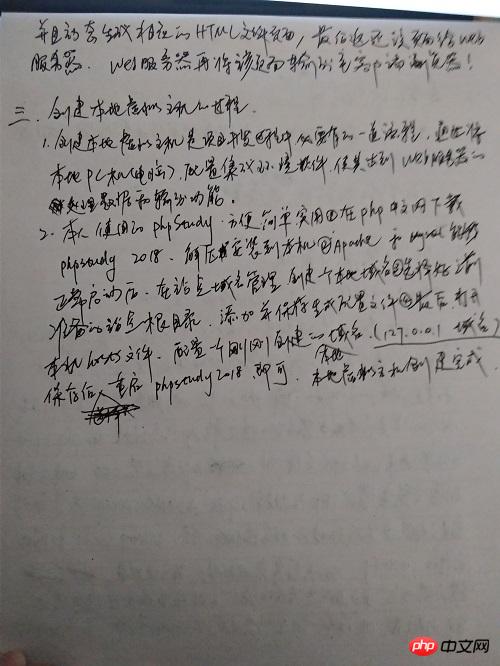 并且动态生成相应的HTML文件页面，最后返还该页面给web
服务器．Web服务器再将该页面输出到客户端浏览器！
三．创建本地虚拟主机的过程．
1.创建本地虚拟主机是项目开发过程中必要有的一道流程，通过将
本地PC机(电脑)，配置集成环境软件，使其达到Web服务器的
处理数据和输出功能。
2. 本人使用的phpStudy．方便简单实用①在php中文网下载
phpstudy 2018．解压安装到本机②Apache 和 mysql 能够
正常启动后．在站点域名管理 创建个本地域名③选择好之前
准备的站点根目录．添加并保存生成配置文件④最后，打开
本机hosts文件．配置个刚刚创建的域名．(127.0.0.1 域名)
保存后．重启 phpstudy2018 即可．本地虚拟主机创建完成．
本地
php 中文网